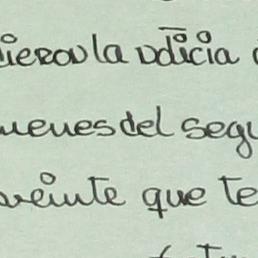 dieron la noticia
jueves del segu
veinte que te